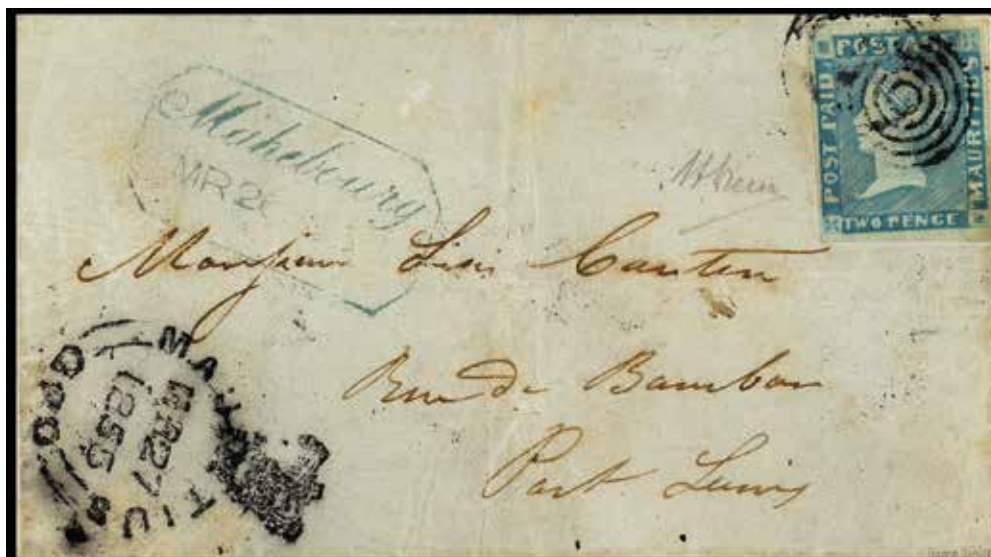 POSTA
POST PAID
MAURITIUS
TWO PENCE
Mahebourg
MR 2
Monsieur
Rue de Bambou
Port Louis
MAURITIUS GPO
MR 27
185